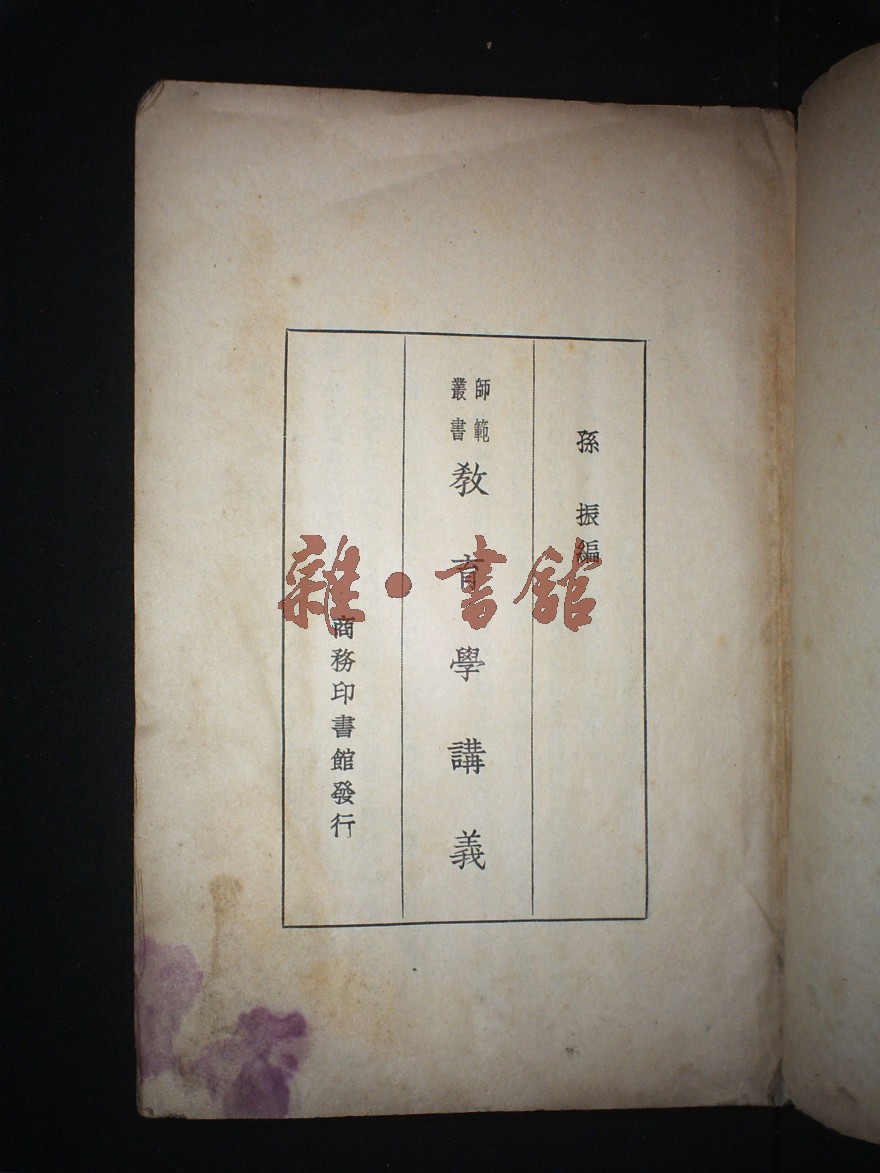 孫振編
師範
叢書
教育學講義
商務印書館發行
雜·書館